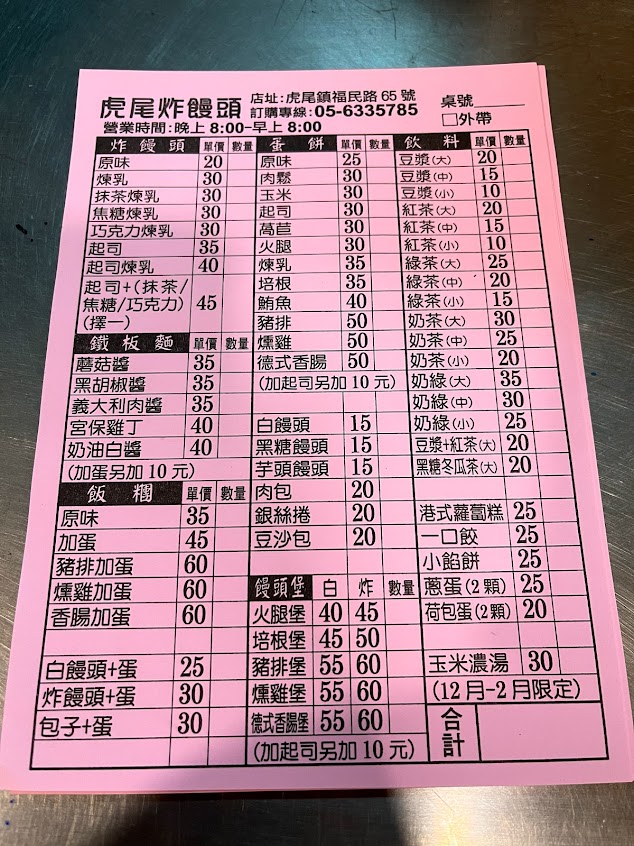 虎尾炸饅頭
店址:虎尾鎮福民路 65 號
訂購專線:05-6335785
營業時間:晚上 8:00-早上 8:00
桌號
□外帶
炸饅頭 單價 數量
原味 20
煉乳 30
抹茶煉乳 30
焦糖煉乳 30
巧克力煉乳 30
起司 35
起司煉乳 40
起司+(抹茶/
焦糖/巧克力) 45
(擇一)
鐵板麵 單價 數量
蘑菇醬 35
黑胡椒醬 35
義大利肉醬 35
宮保雞丁 40
奶油白醬 40
(加蛋另加 10 元)
飯糰 單價 數量
原味 35
加蛋 45
豬排加蛋 60
燻雞加蛋 60
香腸加蛋 60
白饅頭+蛋 25
炸饅頭+蛋 30
包子+蛋 30
蛋餅 單價 數量
原味 25
肉鬆 30
玉米 30
起司 30
萵苣 30
火腿 30
煉乳 35
培根 35
鮪魚 40
豬排 50
燻雞 50
德式香腸 50
(加起司另加 10 元)
白饅頭 15
黑糖饅頭 15
芋頭饅頭 15
肉包 20
銀絲捲 20
豆沙包 20
饅頭堡 白 炸 數量
火腿堡 40 45
培根堡 45 50
豬排堡 55 60
燻雞堡 55 60
德式香腸堡 55 60
(加起司另加 10 元)
飲料 單價 數量
豆漿(大) 20
豆漿(中) 15
豆漿(小) 10
紅茶(大) 20
紅茶(中) 15
紅茶(小) 10
綠茶(大) 25
綠茶(中) 20
綠茶(小) 15
奶茶(大) 30
奶茶(中) 25
奶茶(小) 20
奶綠(大) 35
奶綠(中) 30
奶綠(小) 25
豆漿+紅茶(大) 20
黑糖冬瓜茶(大) 20
港式蘿蔔糕 25
一口餃 25
小餡餅 25
蔥蛋(2顆) 25
荷包蛋(2顆) 20
玉米濃湯 30
(12月-2月限定)
合計